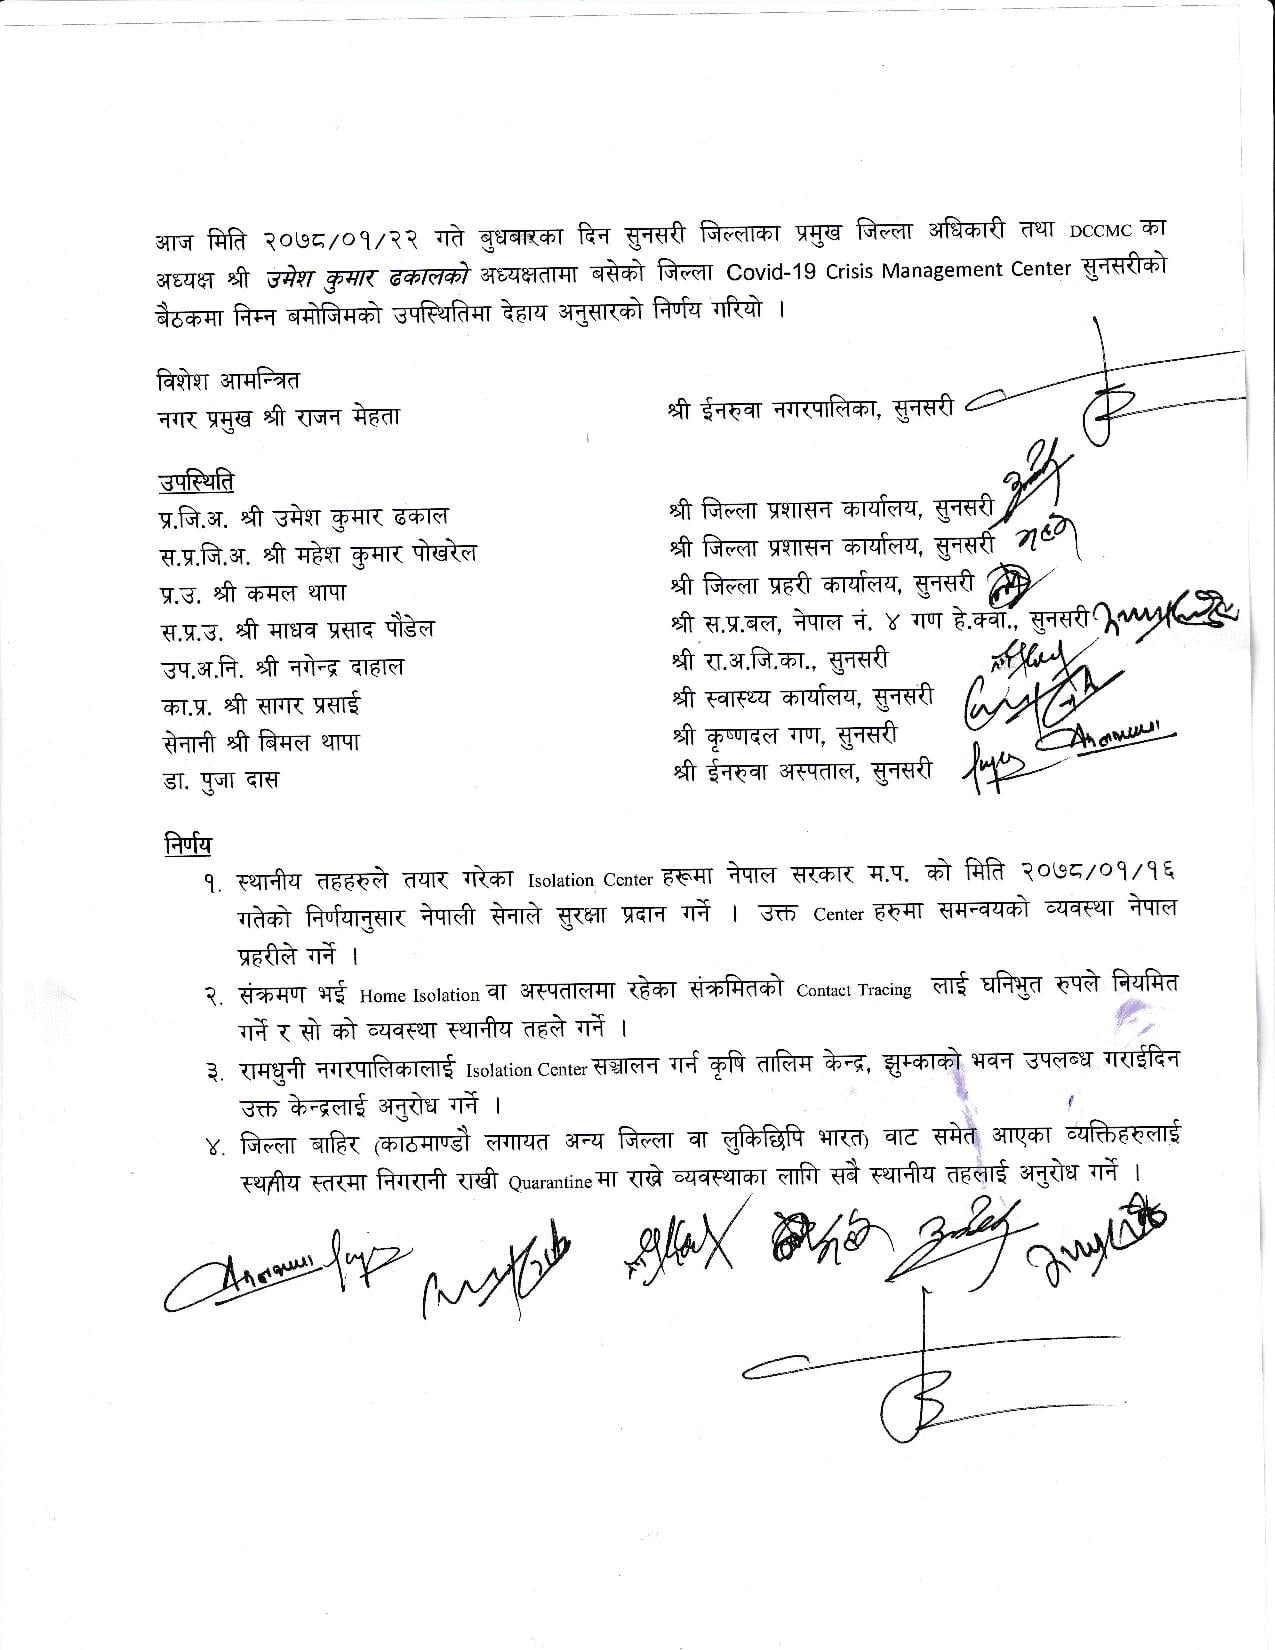 आज मिति २०७८/०१/२२ गते बुधबारका दिन सुनसरी जिल्लाका प्रमुख जिल्ला अधिकारी तथा DCCMC का
अध्यक्ष श्री उमेश कुमार ढकालको अध्यक्षतामा बसेको जिल्ला Covid-19 Crisis Management Center सुनसरीको
बैठकमा निम्न बमोजिमको उपस्थितिमा देहाय अनुसारको निर्णय गरियो ।
विशेश आमन्त्रित
नगर प्रमुख श्री राजन मेहता श्री ईनरुवा नगरपालिका, सुनसरी
उपस्थिति
प्र.जि.अ. श्री उमेश कुमार ढकाल श्री जिल्ला प्रशासन कार्यालय, सुनसरी
स.प्र.जि.अ. श्री महेश कुमार पोखरेल श्री जिल्ला प्रशासन कार्यालय, सुनसरी
प्र.उ. श्री कमल थापा श्री जिल्ला प्रहरी कार्यालय, सुनसरी
स.प्र.उ. श्री माधव प्रसाद पौडेल श्री स.प्र.बल, नेपाल नं. ४ गण हे.क्वा., सुनसरी
उप.अ.नि. श्री नगेन्द्र दाहाल श्री रा.अ.जि.का., सुनसरी
का.प्र. श्री सागर प्रसाई श्री स्वास्थ्य कार्यालय, सुनसरी
सेनानी श्री बिमल थापा श्री कृष्णदल गण, सुनसरी
डा. पुजा दास श्री ईनरुवा अस्पताल, सुनसरी
निर्णय
१. स्थानीय तहहरुले तयार गरेका Isolation Center हरूमा नेपाल सरकार म.प. को मिति २०७८/०१/१६
गतेको निर्णयानुसार नेपाली सेनाले सुरक्षा प्रदान गर्ने । उक्त Center हरुमा समन्वयको व्यवस्था नेपाल
प्रहरीले गर्ने ।
२. संक्रमण भई Home Isolation वा अस्पतालमा रहेका संक्रमितको Contact Tracing लाई घनिभुत रुपले नियमित
गर्ने र सो को व्यवस्था स्थानीय तहले गर्ने ।
३. रामधुनी नगरपालिकालाई Isolation Center सञ्चालन गर्न कृषि तालिम केन्द्र, झुम्काको भवन उपलब्ध गराईदिन
उक्त केन्द्रलाई अनुरोध गर्ने ।
४. जिल्ला बाहिर (काठमाण्डौ लगायत अन्य जिल्ला वा लुकिछिपि भारत) वाट समेत आएका व्यक्तिहरुलाई
स्थानीय स्तरमा निगरानी राखी Quarantine मा राख्ने व्यवस्थाका लागि सबै स्थानीय तहलाई अनुरोध गर्ने ।